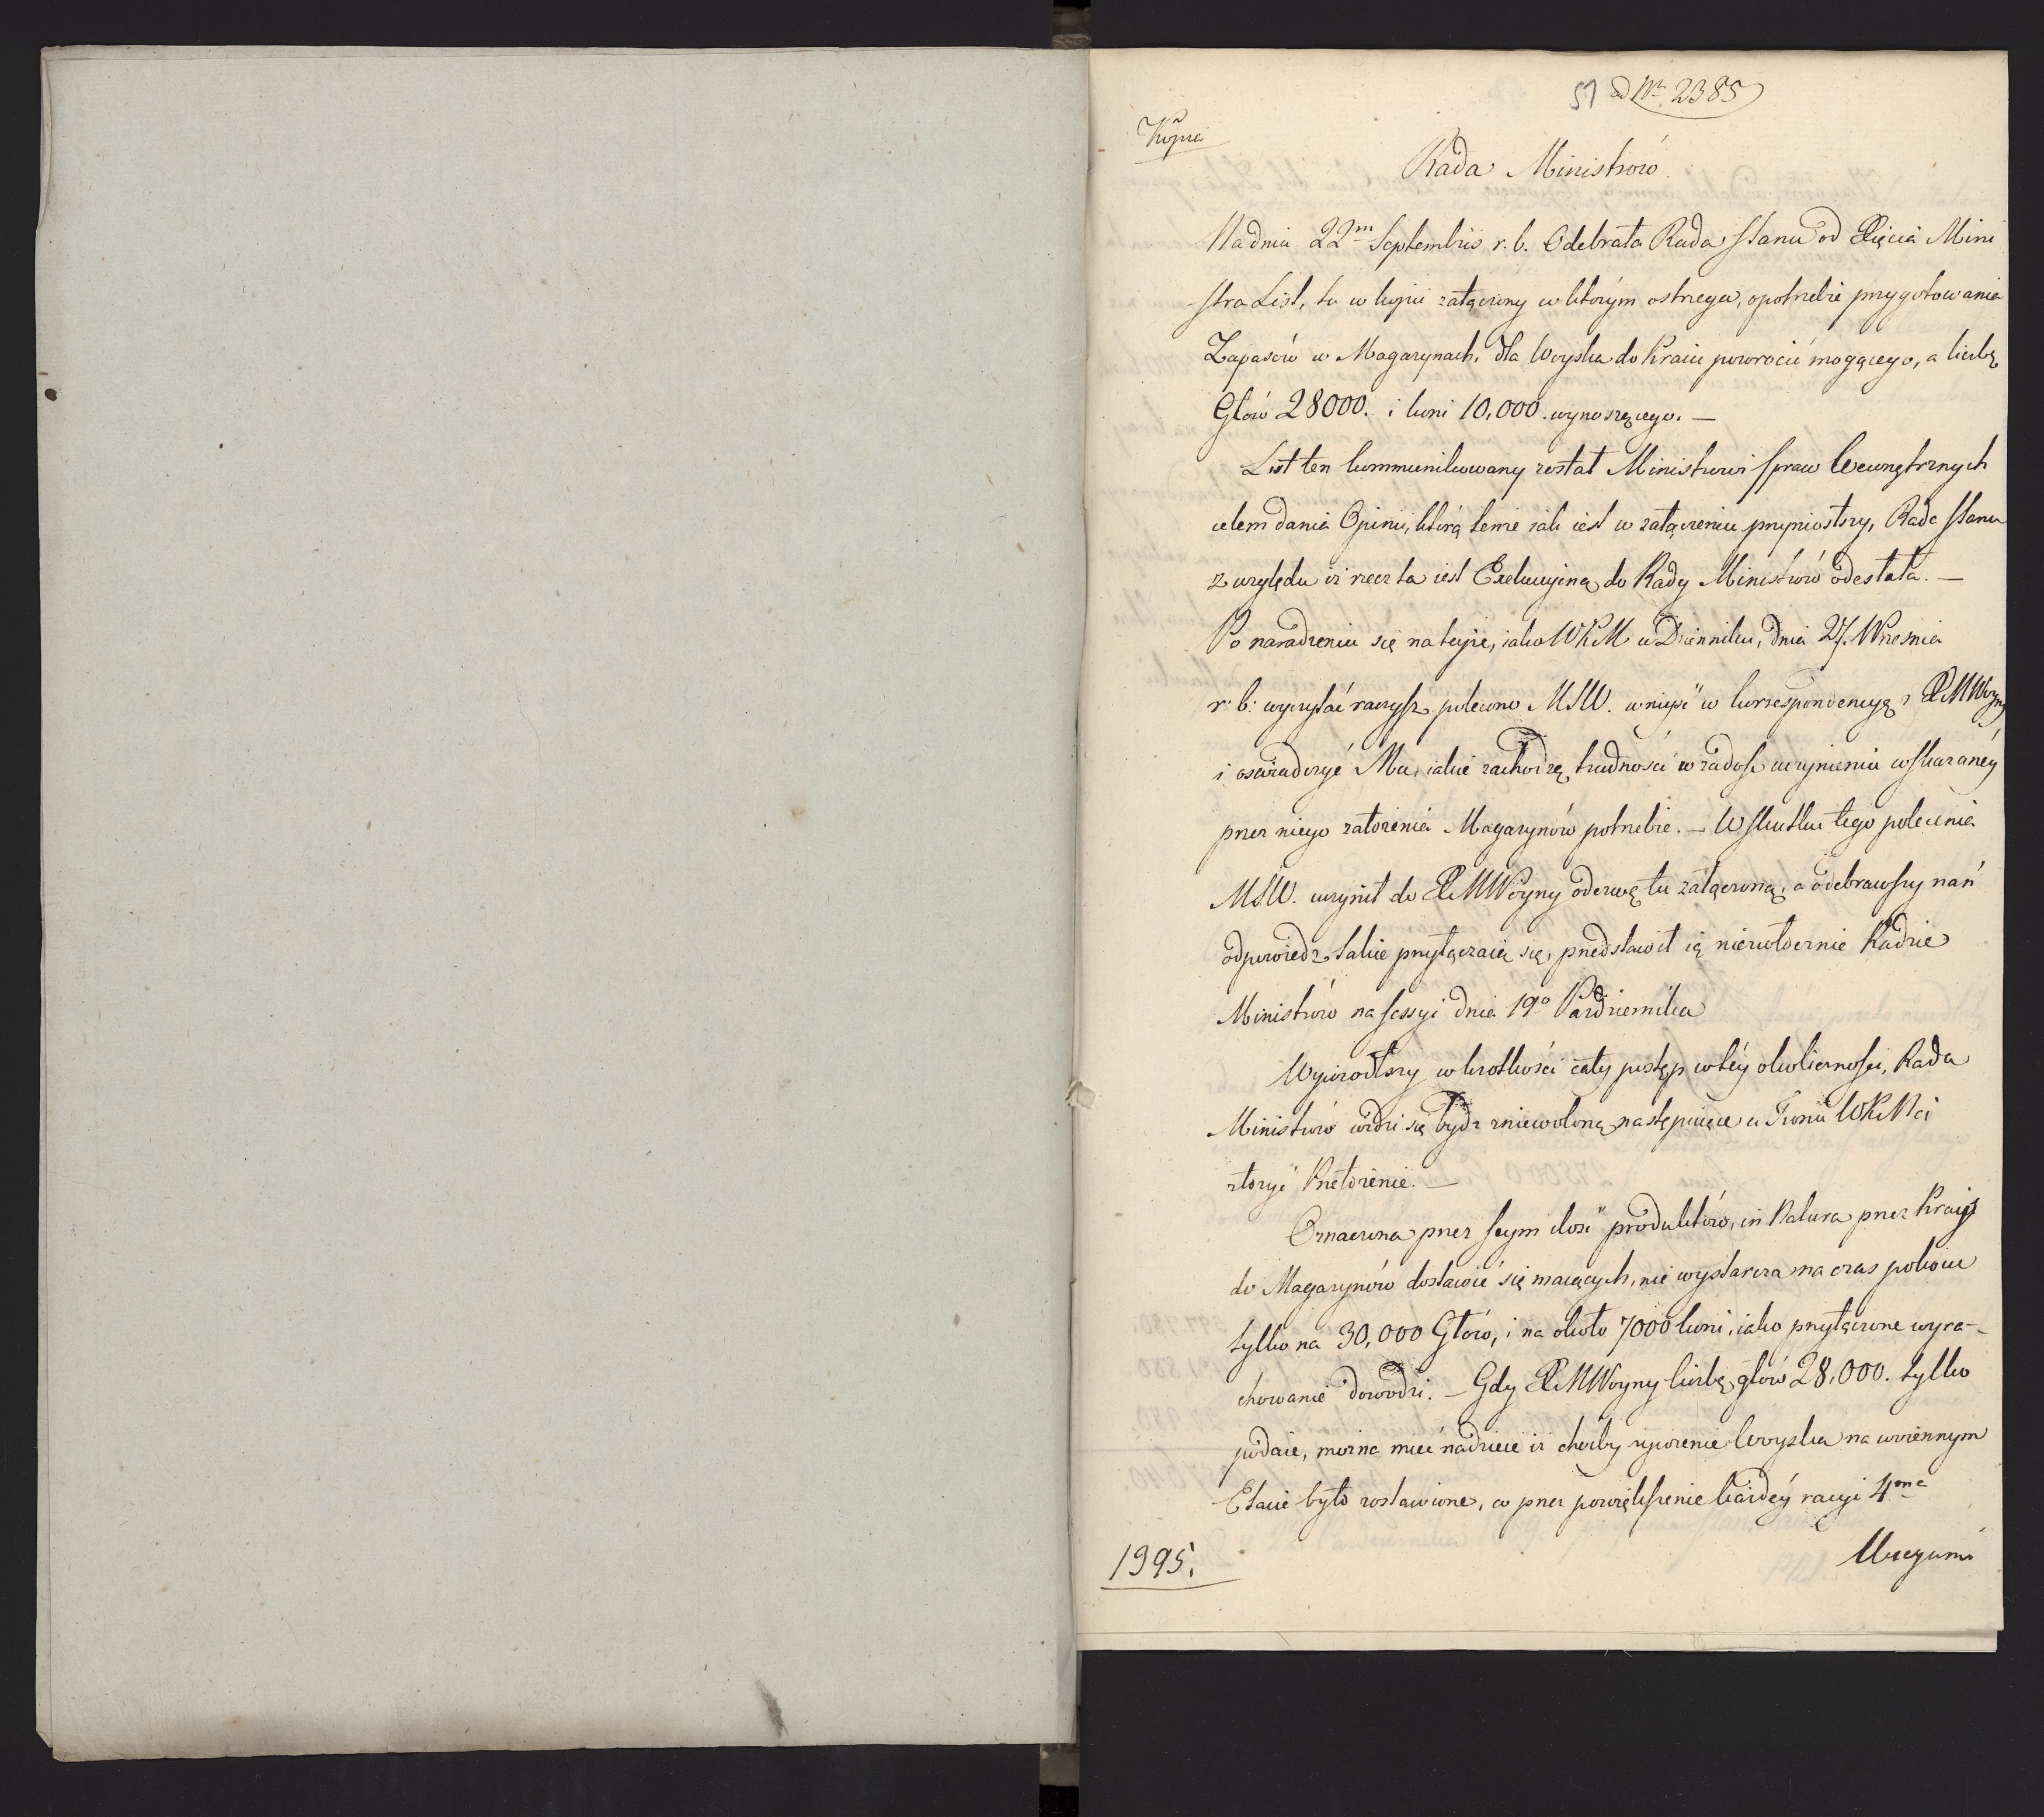 51 ad Nr. 2385
Kopia
Rada Ministrów.
Na dniu 22m Septembris r. b. Odebrała Rada Stanu od Xięcia Mini
stra List, tu w kopii załączony w którym ostrzega, o potrzebie przygotowania
Zapasów w Magazynach, dla Woyska do Kraiu powrócić mogącego, a liczbę
Głów 28000. i koni 10,000. wynoszącego. —
List ten kommunikowany został Ministrowi Spraw Wewnętrznych
celem dania Opinii, którą tenie jak iest w załączeniu przyniosłszy, Rada Stanu
z względu iż rzecz ta iest Exekucyiną do Rady Ministrów odesłała. —
Po naradzeniu się na teyże, iako WKM w Dzienniku, dnia 27. Wrzesnia
r: b: wyczytać raczysz, polecono MSW. wniyść w korrespondencyą z XM Woyny
i oświadczyć Mu, iakie zachodzą trudności w zadość uczynieniu wskazanéy
przez niego założenia Magazynów potrzebie. — W skutku tego polecenia
MSW. uczynił do XM Woyny odezwę tu załączoną, a odebrawszy nań
odpowiedz takie przyłączaią się, przedstawił ią niezwłocznie Radzie
Ministrów na Sessyi dnia 19o Pazdziernika
Wywiodłszy w krotkości cały postęp w téy okoliczności, Rada
Ministrów widzi się bydź zniewoloną następuiące u Tronu WKMci
złożyć Przełożenie. —
Oznaczona przez Seym ilość produktów, in Natura przez Kray
do Magazynów dostawić się maiących, nie wystarcza na czas pokoiu
tylko na 30,000 Głów, i na około 7000 koni, iako przyłączone wyra-
chowanie dowodzi. — Gdy XM Woyny liczbę głów 28,000. tylko
podaie, można mieć nadzieię iż choćby żywienie Woyska na woiennym
Etacie było zostawione, co przez powiększenie każdéy racyi 4ma
Uncyami
1995.